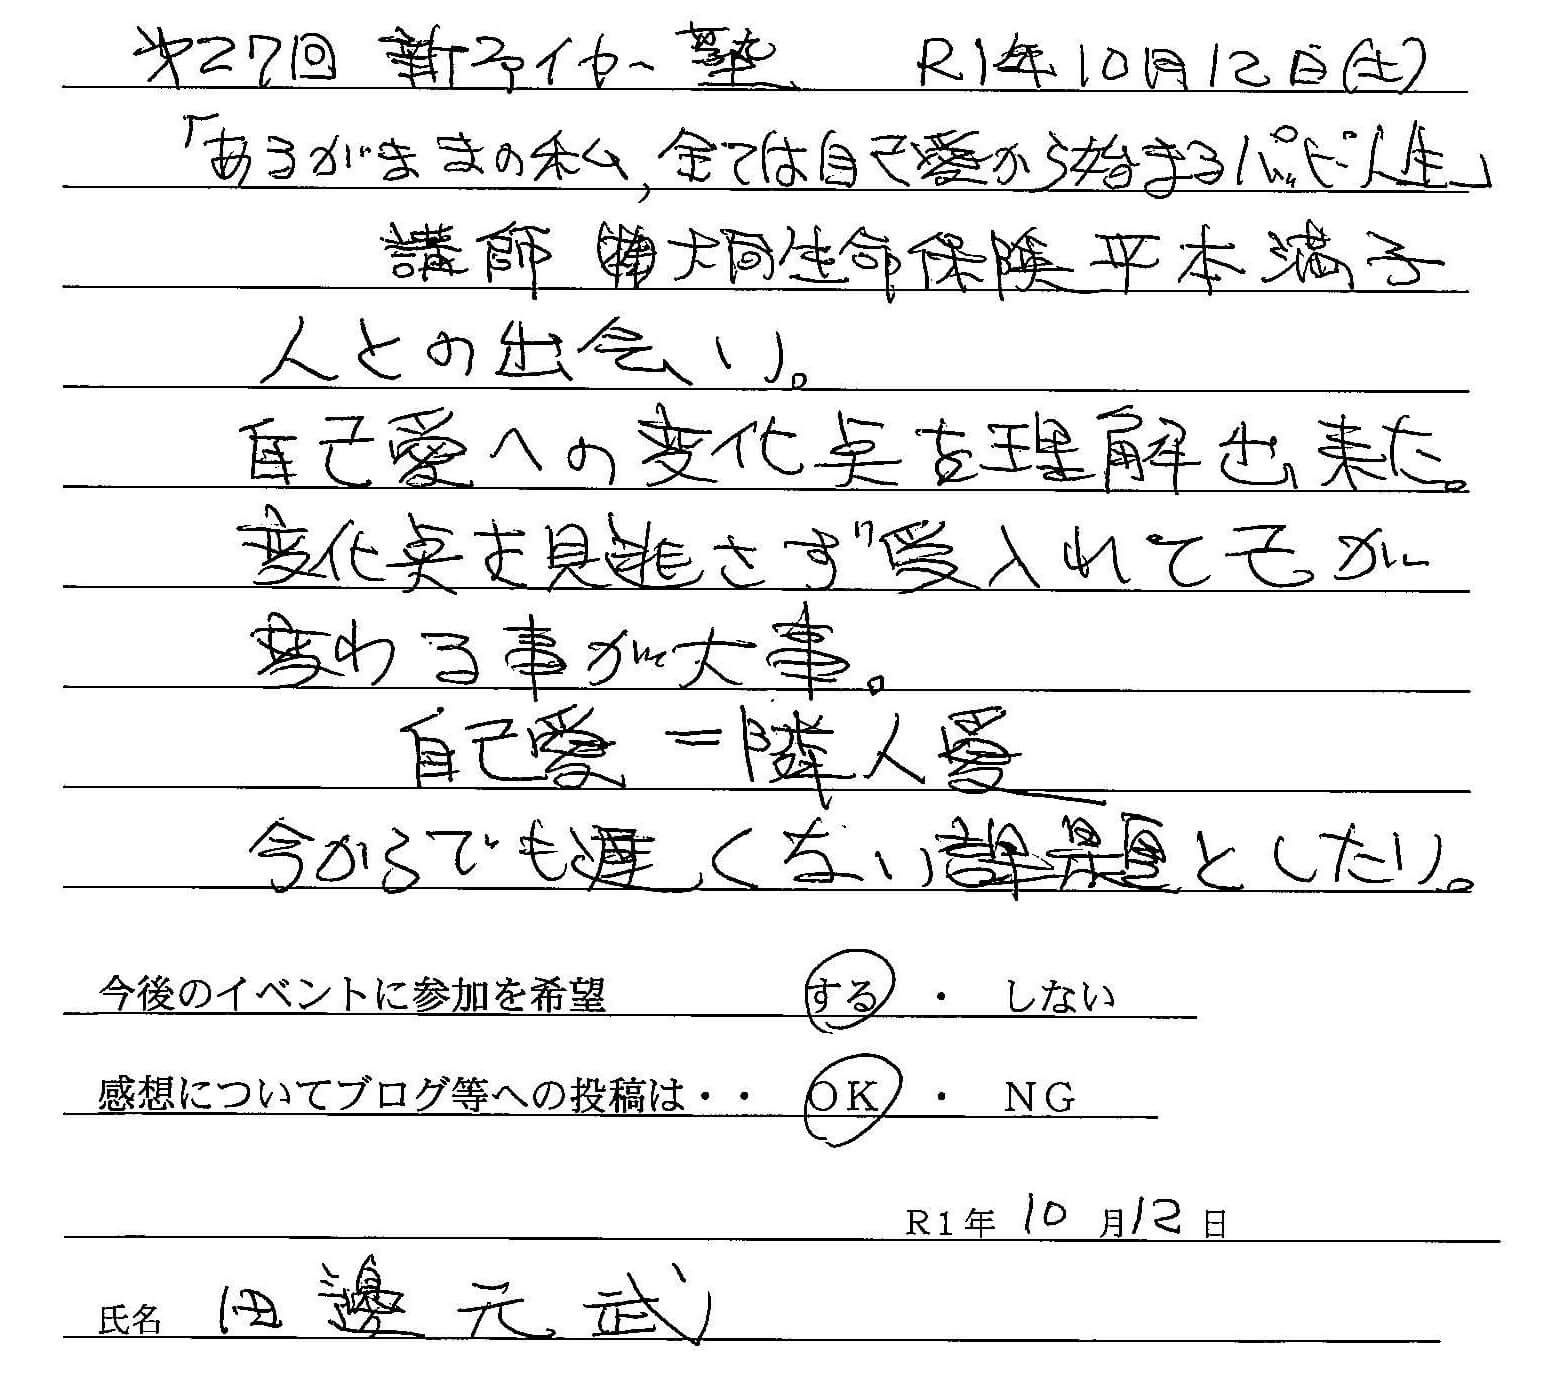 第27回 新予イカー塾 R1年10月12日(土)
「あるがままの私,全ては自己愛から始まるハッピー人生」
講師 大同生命保険 平本満子
人との出会い。
自己愛への変化点を理解出来た。
変化点を見逃さず受入れて己が
変わる事が大事。
自己愛=隣人愛
今からでも遅くない課題としたい。
今後のイベントに参加を希望 する ・ しない
感想についてブログ等への投稿は・・ OK ・ NG
R1年 10月12日
氏名 田邊元武